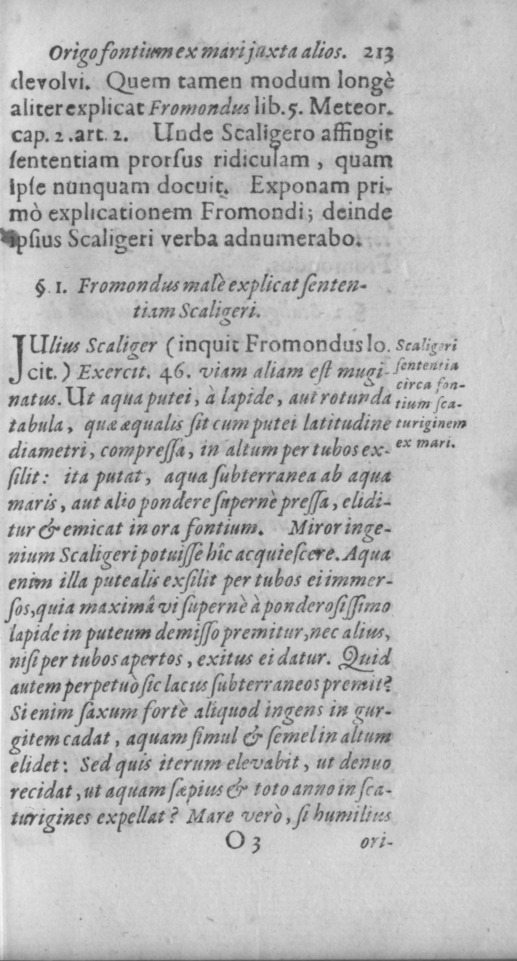 Origo fontium ex mari juxta alios. 213
devolvi. Quem tamen modum longè
aliter explicat Fromondus lib. 5. Meteor.
cap. 2. art. 2. Unde Scaligero affingit
ſententiam prorſus ridiculam, quam
ipſe nunquam docuit. Exponam pri-
mò explicationem Fromondi; deinde
ipſius Scaligeri verba adnumerabo.
§. 1. Fromondus malè explicat ſenten-
tiam Scaligeri.
JUlius Scaliger (inquit Fromondus lo.
cit.) Exercit. 46. viam aliam eſt mugi-
natus. Ut aqua putei, à lapide, aut rotunda
tabula, quæ æqualis ſit cum putei latitudine
diametri, compreſſa, in altum per tubos ex-
ſilit: ita putat, aqua ſubterranea ab aqua
maris, aut alio pondere ſupernè preſſa, elidi-
tur & emicat in ora fontium. Miror inge-
nium Scaligeri potuiſſe hîc acquieſcere. Aqua
enim illa putealis exſilit per tubos ei immer-
ſos, quia maximâ vi ſupernè à ponderoſiſſimo
lapide in puteum demiſſo premitur, nec alius,
niſi per tubos apertos, exitus ei datur. Quid
autem perpetuò ſic lacus ſubterraneos premit?
Si enim ſaxum fortè aliquod ingens in gur-
gitem cadat, aquam ſimul & ſemel in altum
elidet: Sed quis iterum elevabit, ut denuo
recidat, ut aquam ſæpius & toto anno in ſca-
turigines expellat? Mare verò, ſi humilius
O 3 ori-
Scaligeri
ſententia
circa fon-
tium ſca-
turiginem
ex mari.